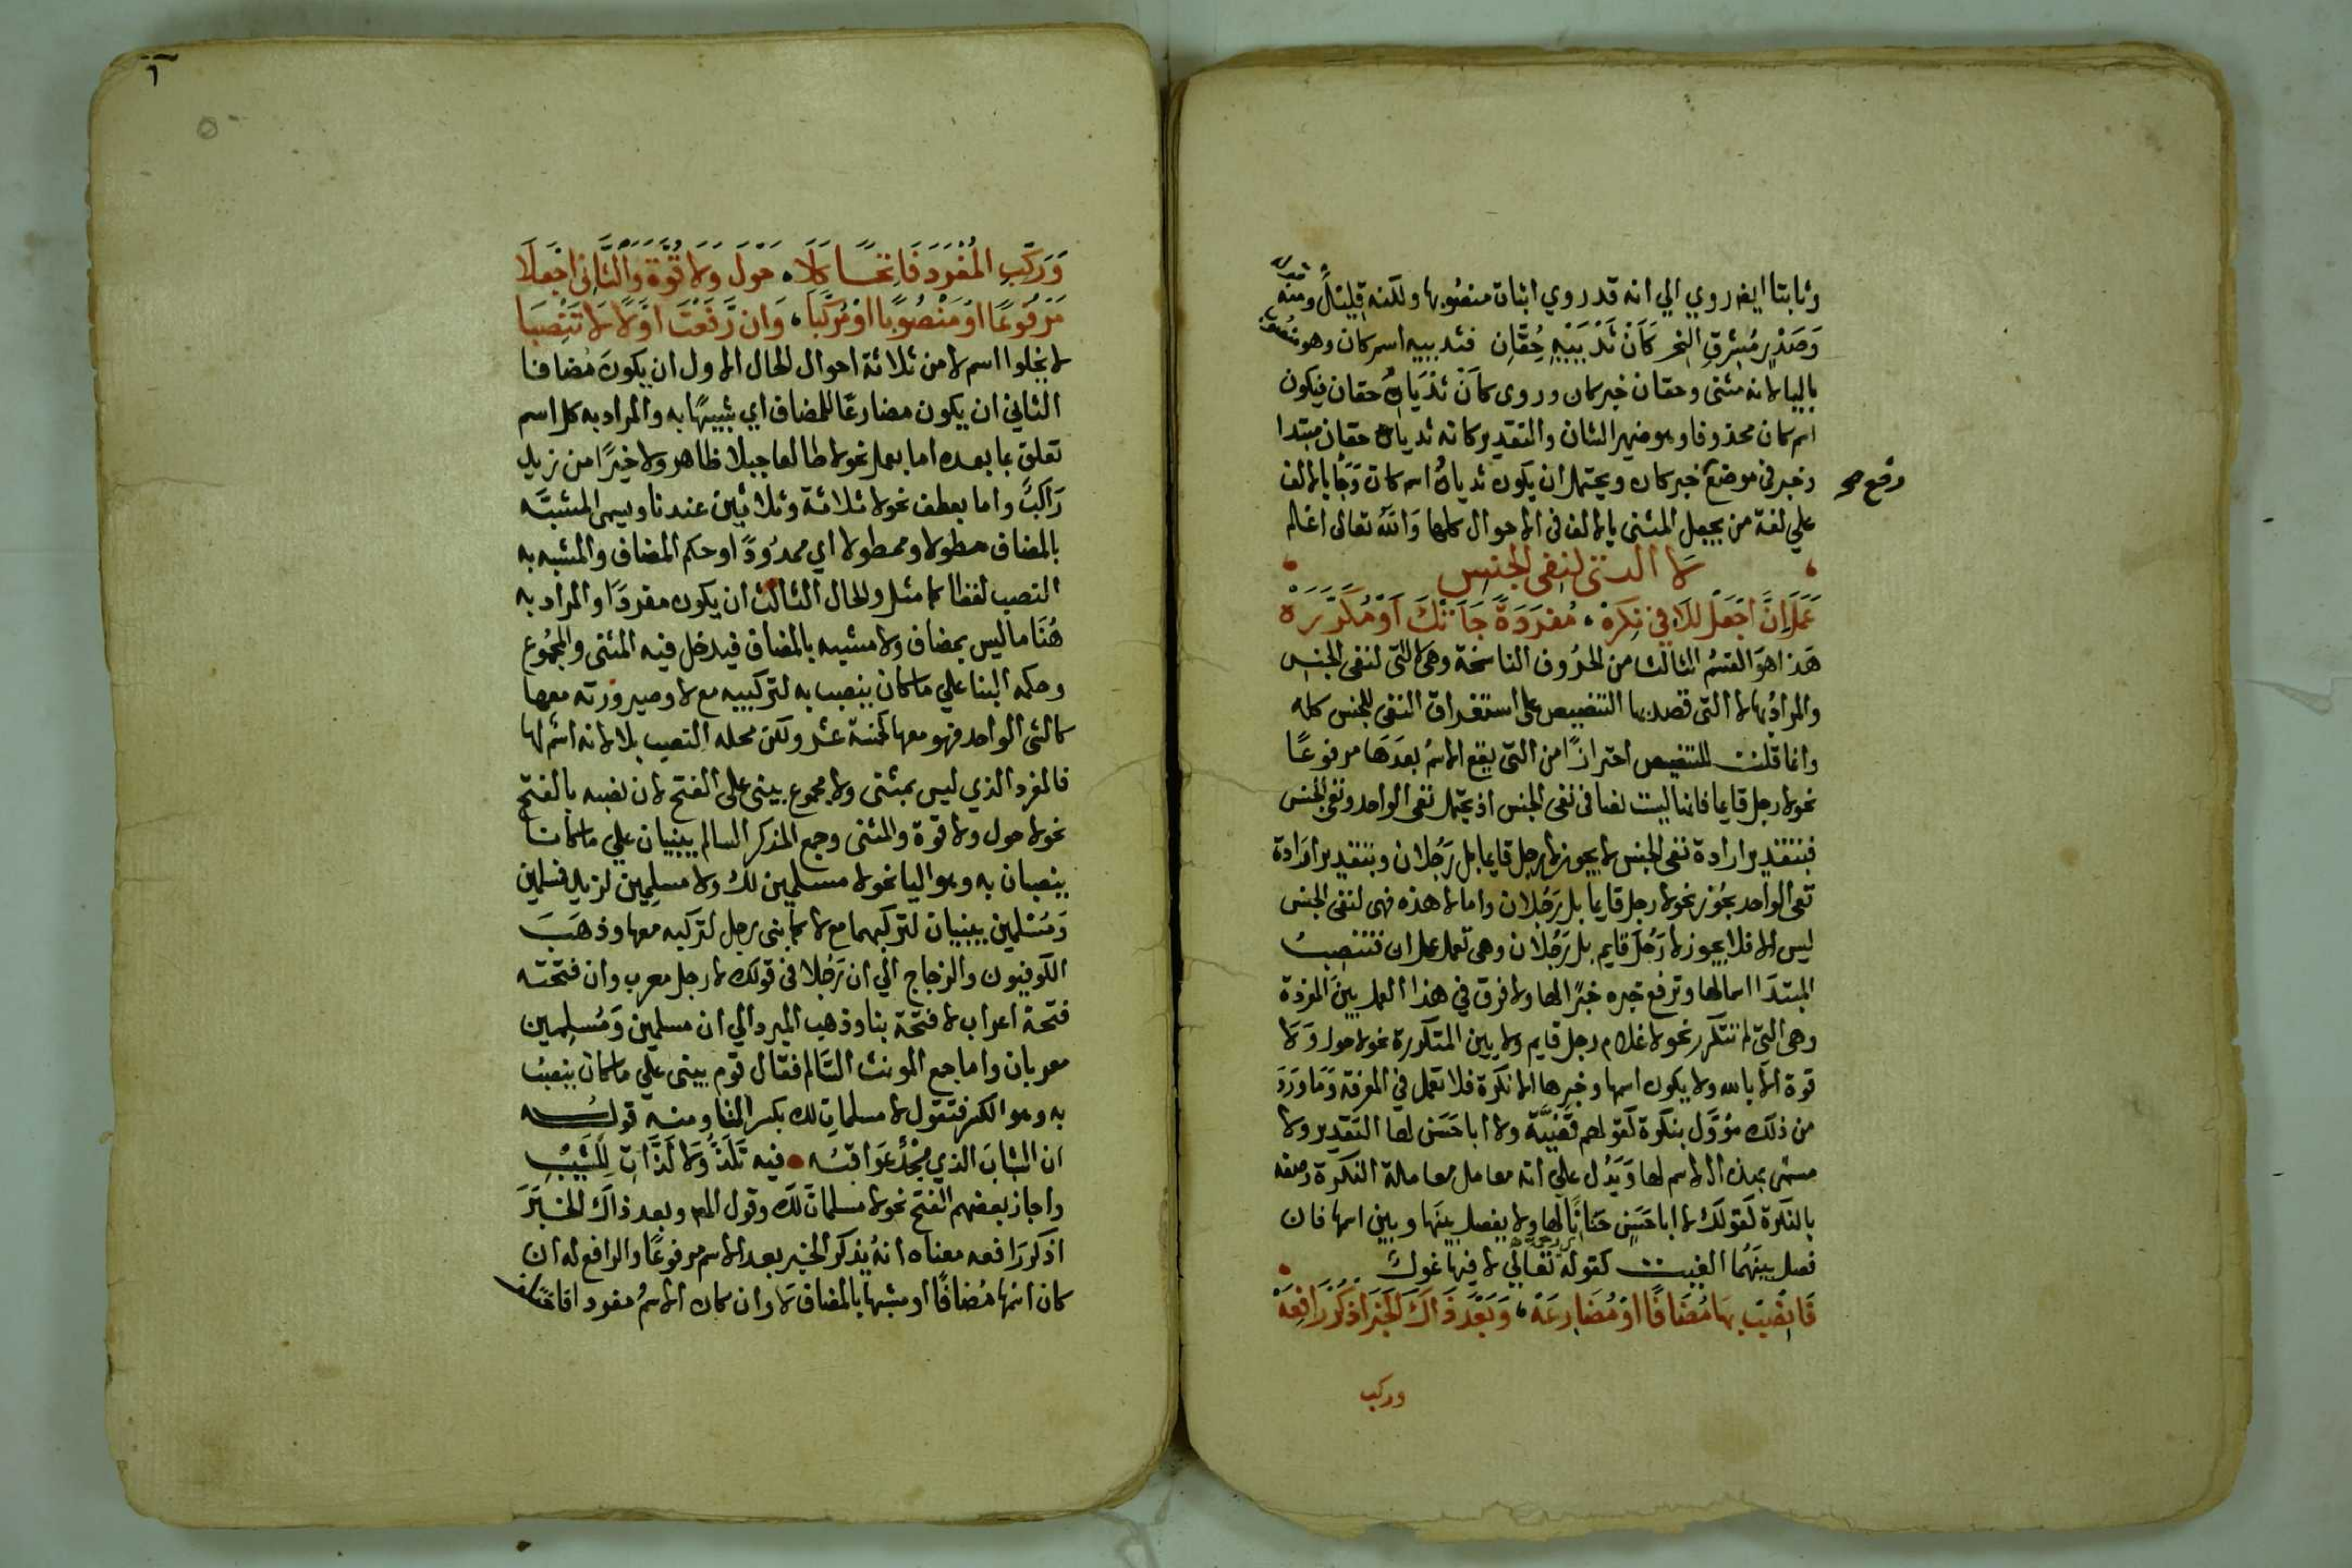 وثابتا ايضا روي الي انه قد روي اثبات منصوبها ولكنه قليل ومنه قوله
وَصَدْرٍ مُشْرِقِ النحر كَأَنْ ثَدْيَيْهِ حُقَّانِ فثدييه اسم كان وهو منصوب
بالياء لانه مثنى وحقان خبر كان وروى كأن ثَدْيَاهُ حقان فيكون
اسم كان محذوفا وهو ضمير الشان والتقدير كانه ثدياه حقان مبتدا
وخبر في موضع خبر كان ويحتمل ان يكون ثدياه اسم كان وَجَا بالالف
رفع صح
علي لغة من يجعل المثنى بالالف في الاحوال كلها وَاللّٰه تعالى اعلم
لا التى لنفى الجنس
عَمَلَ اِنَّ اجْعَلْ لِلَا فِي نَكِرَهْ مُفرَدَةً جَاءَتْكَ اَوْ مُكَرَّرَهْ
هَذا هوَ القسمُ الثالث من الحرُوف الناسخة وهى لا التى لنفى الجنس
والمرادُ بها لا التى قصد بها التنصيص على استغراق النفى للجنس كله
وانما قلت للتنصيص احترازًا من التى يقع الاسمُ بعدَهَا مرفوعًا
نحو لا رجل قايما فانها ليست نصا في نفى الجنس اذ يحتمل نفى الواحد ونفى الجنس
فبتقدير ارادة نفى الجنس لا يجوز لا رجل قايما بل رَجُلان وبتقدير ارَادة
نفى الواحد يجُوز نحو لا رجل قايما بل رَجُلان واما لا هذه فهى لنفى الجنس
ليس الا فلا يجوز لا رَجُلَ قايم بل رَجُلان وهى تعمل عمل ان فتنصِبُ
المبتدَا اسما لها وترفع خبره خبرًا لها ولا فرق في هذا العمل بين المفردة
وهى التى لم تتكرر نحو لا غلام رجل قايم ولا بين المتكررة نحو لا حول وَلَا
قوة الا بالله ولا يكون اسمها وخبرها الا نكرة فلا تعمل في المعرفة وَمَا وَرَدَ
من ذلك مؤوَّل بنكرة كقولهم قَضِيَّة ولا ابا حَسَن لها التقدير ولا
مسمى بهذا الاسم لها وَيَدُل علي انه معامل معاملة النكرة وصفه
بالنكرة كقولك لا ابا حَسَنٍ حَنَانًا لها ولا يفصل بينَها وبين اسمها فان
فصل بينَهُما الغيت كقوله تعالي لا فيها غول
فَانْصِبْ بِهَا مُضَافًا اَوْ مُضَارِعَهْ وَبَعْدَ ذَاكَ الخَبَرَ اذْكُرْ رَافِعَهْ
وركب
٦
وَرَكِّبِ المُفْرَدَ فَاتِحًا كَلَا حَوْلَ وَلَا قُوَّةَ وَالثَّانِى اجْعَلَا
مَرْفُوعًا اَوْ مَنْصُوبًا اَوْ مُرَكَّبَا وَانْ رَفَعْتَ اوَّلًا لَا تَنْصِبَا
لا يخلوا اسم لا من ثلاثة احوال الحال الاول ان يكونَ مُضافا
الثاني ان يكون مضارعًا للمضاف اي شبيهًا به والمراد به كل اسم
تعلق بما بعده اما بعمل نحو لا طالعا جبلا ظاهر ولا خيرًا من زيدٍ
رَاكبٌ واما بعطف نحو لا ثلاثة وثلاثين عندنا ويسمى المشبَّه
بالمضاف مطولا وممطولا اي ممدُودًا وحكم المضاف والمشبه به
النصب لفظا كما مثل والحال الثالث ان يكون مفردًا والمراد به
هُنَا ما ليس بمضاف ولا مشبه بالمضاف فيدخل فيه المثنى والمجمُوع
وحكمه البنا علي ما كان ينصب به لتركيبه مع لا وصيرورته معها
كالشي الواحد فهو معها كخمسة عشر ولكن محله النصب بلا لانه اسم لها
فالمفرد الذي ليس بمثنى ولا مجموع يبنى على الفتح لان نصبه بالفتح
نحو لا حول ولا قوة والمثنى وجمع المذكر السالم يبنيان علي ما كانا
ينصبان به وهو اليا نحو لا مسلمين لك ولا مسلِمِين لزيد فمسلمين
وَمُسْلمين يبنيان لتركبهما مع لا كما بنى رجل لتركبه معها وذهَبَ
الكوفيون والزجاج الي ان رَجُلا في قولك لا رجل معرب وان فتحته
فتحة اعراب لا فتحة بنا وذهب المبرد الي ان مسلمين وَمُسلِمين
معربان واما جمع المونث السَّالم فقال قوم يبنى علي ما كان ينصبُ
به وهو الكسر فتقول لا مسلماتِ لك بكسر التا ومنه قولــه
ان الشبابَ الذي مجْدٌ عَوَاقبُه فيه نَلَذُّ وَلا لَذَّاتِ لِلشِّيْبِ
واجاز بعضهم الفتح نحو لا مسلماتَ لك وقول المص وبعد ذاك الخبَرَ
اذكر رَافعه معناه انهُ يذكر الخبر بعد الاسم مرفوعًا والرافع له ان
كان اسمُها مُضافًا او مشبها بالمضاف لا وان كان الاسمُ مفردا